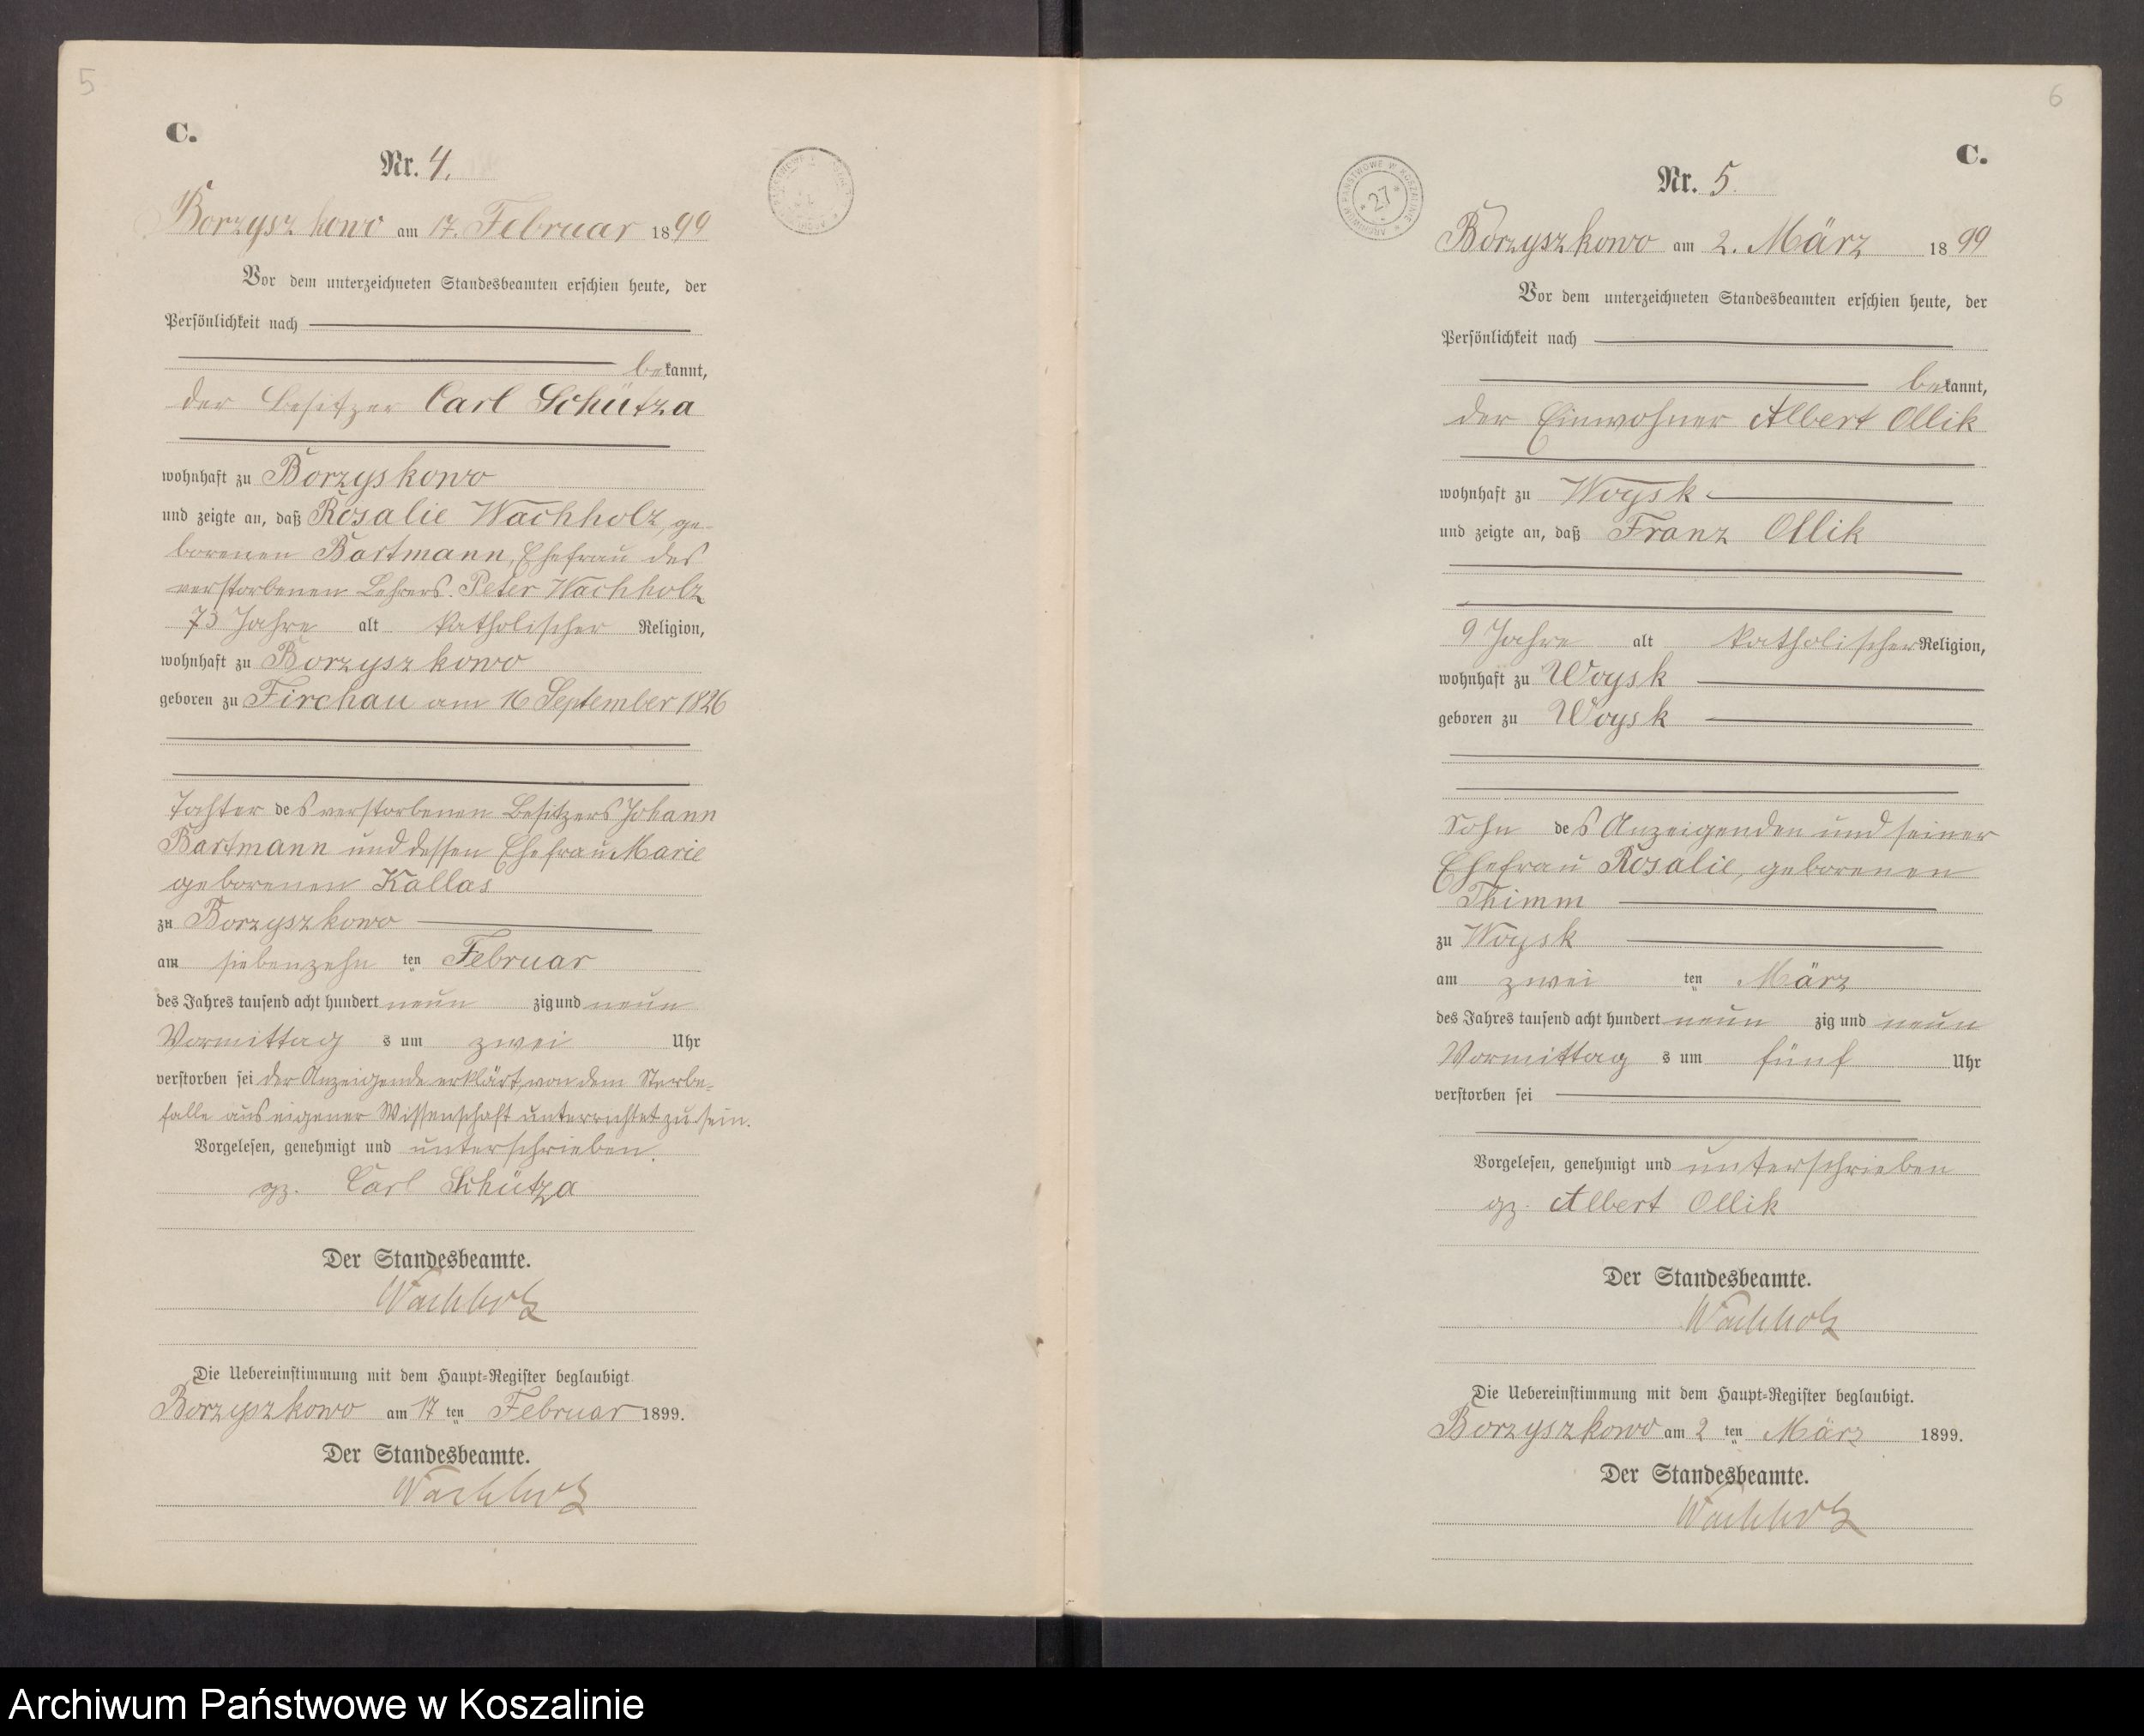 5
C.
Nr. 4.
Borzyszkowo am 17. Februar 1899
Vor dem unterzeichneten Standesbeamten erschien heute, der
Persönlichkeit nach
bekannt,
der Besitzer Carl Schütza
wohnhaft zu Borzyskowo
und zeigte an, daß Rosalie Wachholz, ge-
borenen Bartmann, Ehefrau des
verstorbenen Lehrers Peter Wachholz
73 Jahre alt katholischer Religion,
wohnhaft zu Borzyszkowo
geboren zu Firchau am 16 September 1826
Tochter des verstorbenen Besitzers Johann
Bartmann und dessen Ehefrau Marie
geborenen Kallas
zu Borzyszkowo
am siebenzehn ten Februar
des Jahres tausend acht hundert neun zig und neun
Vormittag s um zwei Uhr
verstorben sei der Anzeigende erklärt, von dem Sterbe-
falle aus eigener Wissenschaft unterrichtet zu sein.
Vorgelesen, genehmigt und unterschrieben.
gz. Carl Schütza
Der Standesbeamte.
Wachholz
Die Uebereinstimmung mit dem Haupt-Register beglaubigt
Borzyszkowo am 17 ten Februar 1899.
Der Standesbeamte.
Wachholz
6
C.
ARCHIWUM PAŃSTWOWE W KOSZALINIE
27
Nr. 5.
Borzyszkowo am 2. März 1899
Vor dem unterzeichneten Standesbeamten erschien heute, der
Persönlichkeit nach
bekannt,
der Einwohner Albert Ollik
wohnhaft zu Woysk
und zeigte an, daß Franz Ollik
9 Jahre alt katholischer Religion,
wohnhaft zu Woysk
geboren zu Woysk
Sohn des Anzeigenden und seiner
Ehefrau Rosalie, geborenen
Thimm
zu Woysk
am zwei ten März
des Jahres tausend acht hundert neun zig und neun
Vormittag s um fünf Uhr
verstorben sei
Vorgelesen, genehmigt und unterschrieben
gz. Albert Ollik
Der Standesbeamte.
Wachholz
Die Uebereinstimmung mit dem Haupt-Register beglaubigt.
Borzyszkowo am 2 ten März 1899.
Der Standesbeamte.
Wachholz
Archiwum Państwowe w Koszalinie